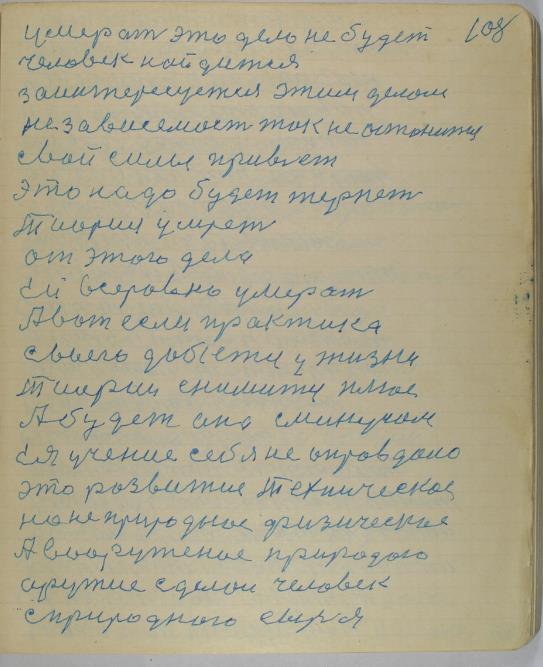 умерат это дело не будет 108
человек найдится
заинтересуется этим делом
незовисемост ток не остонится
свои силы привьет
это надо будет терпет
Тиория умрет
от этого дела
Ей всеровно умерат
А вот если практика
своего добiется у жизни
Тиории снимится плюс
А будет она сминусом
Ея учение себя не оправдало
это розвитие Техническое
но не природное физическое
А вооружение природого
оружие сделол человек
с природного сырья